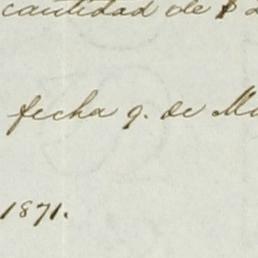 cantidad de $
fecha q. de
1871.